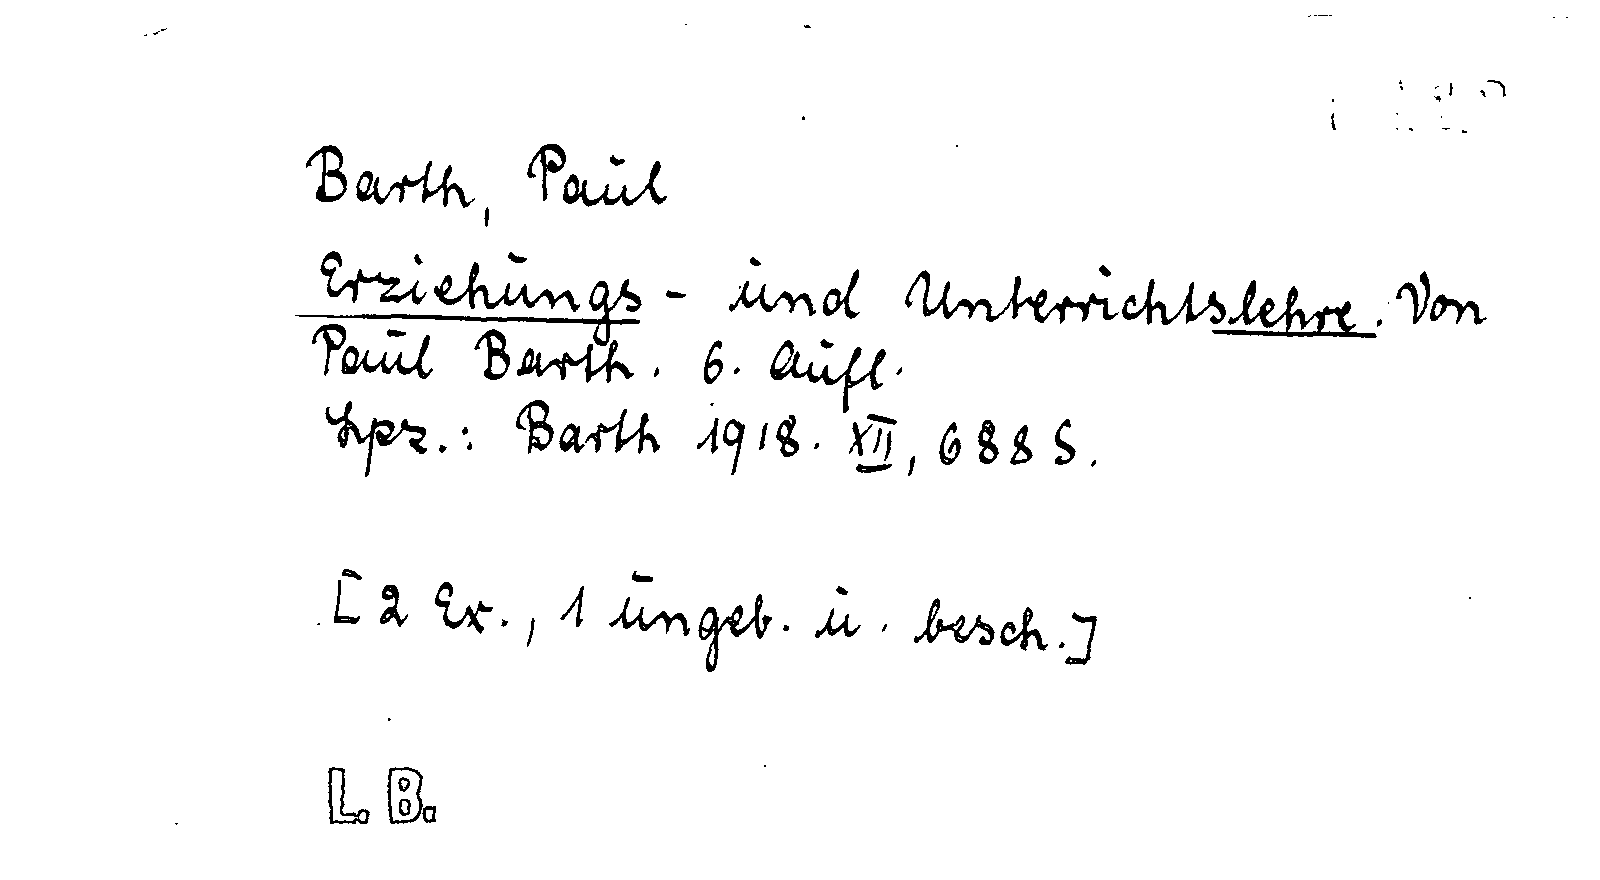 Barth, Paul
Erziehungs- und Unterrichtslehre. Von
Paul Barth. 6. Aufl.
Lpz.: Barth 1918. XII, 688 S.
[2 Ex., 1 ungeb. u. besch.]
L. B.